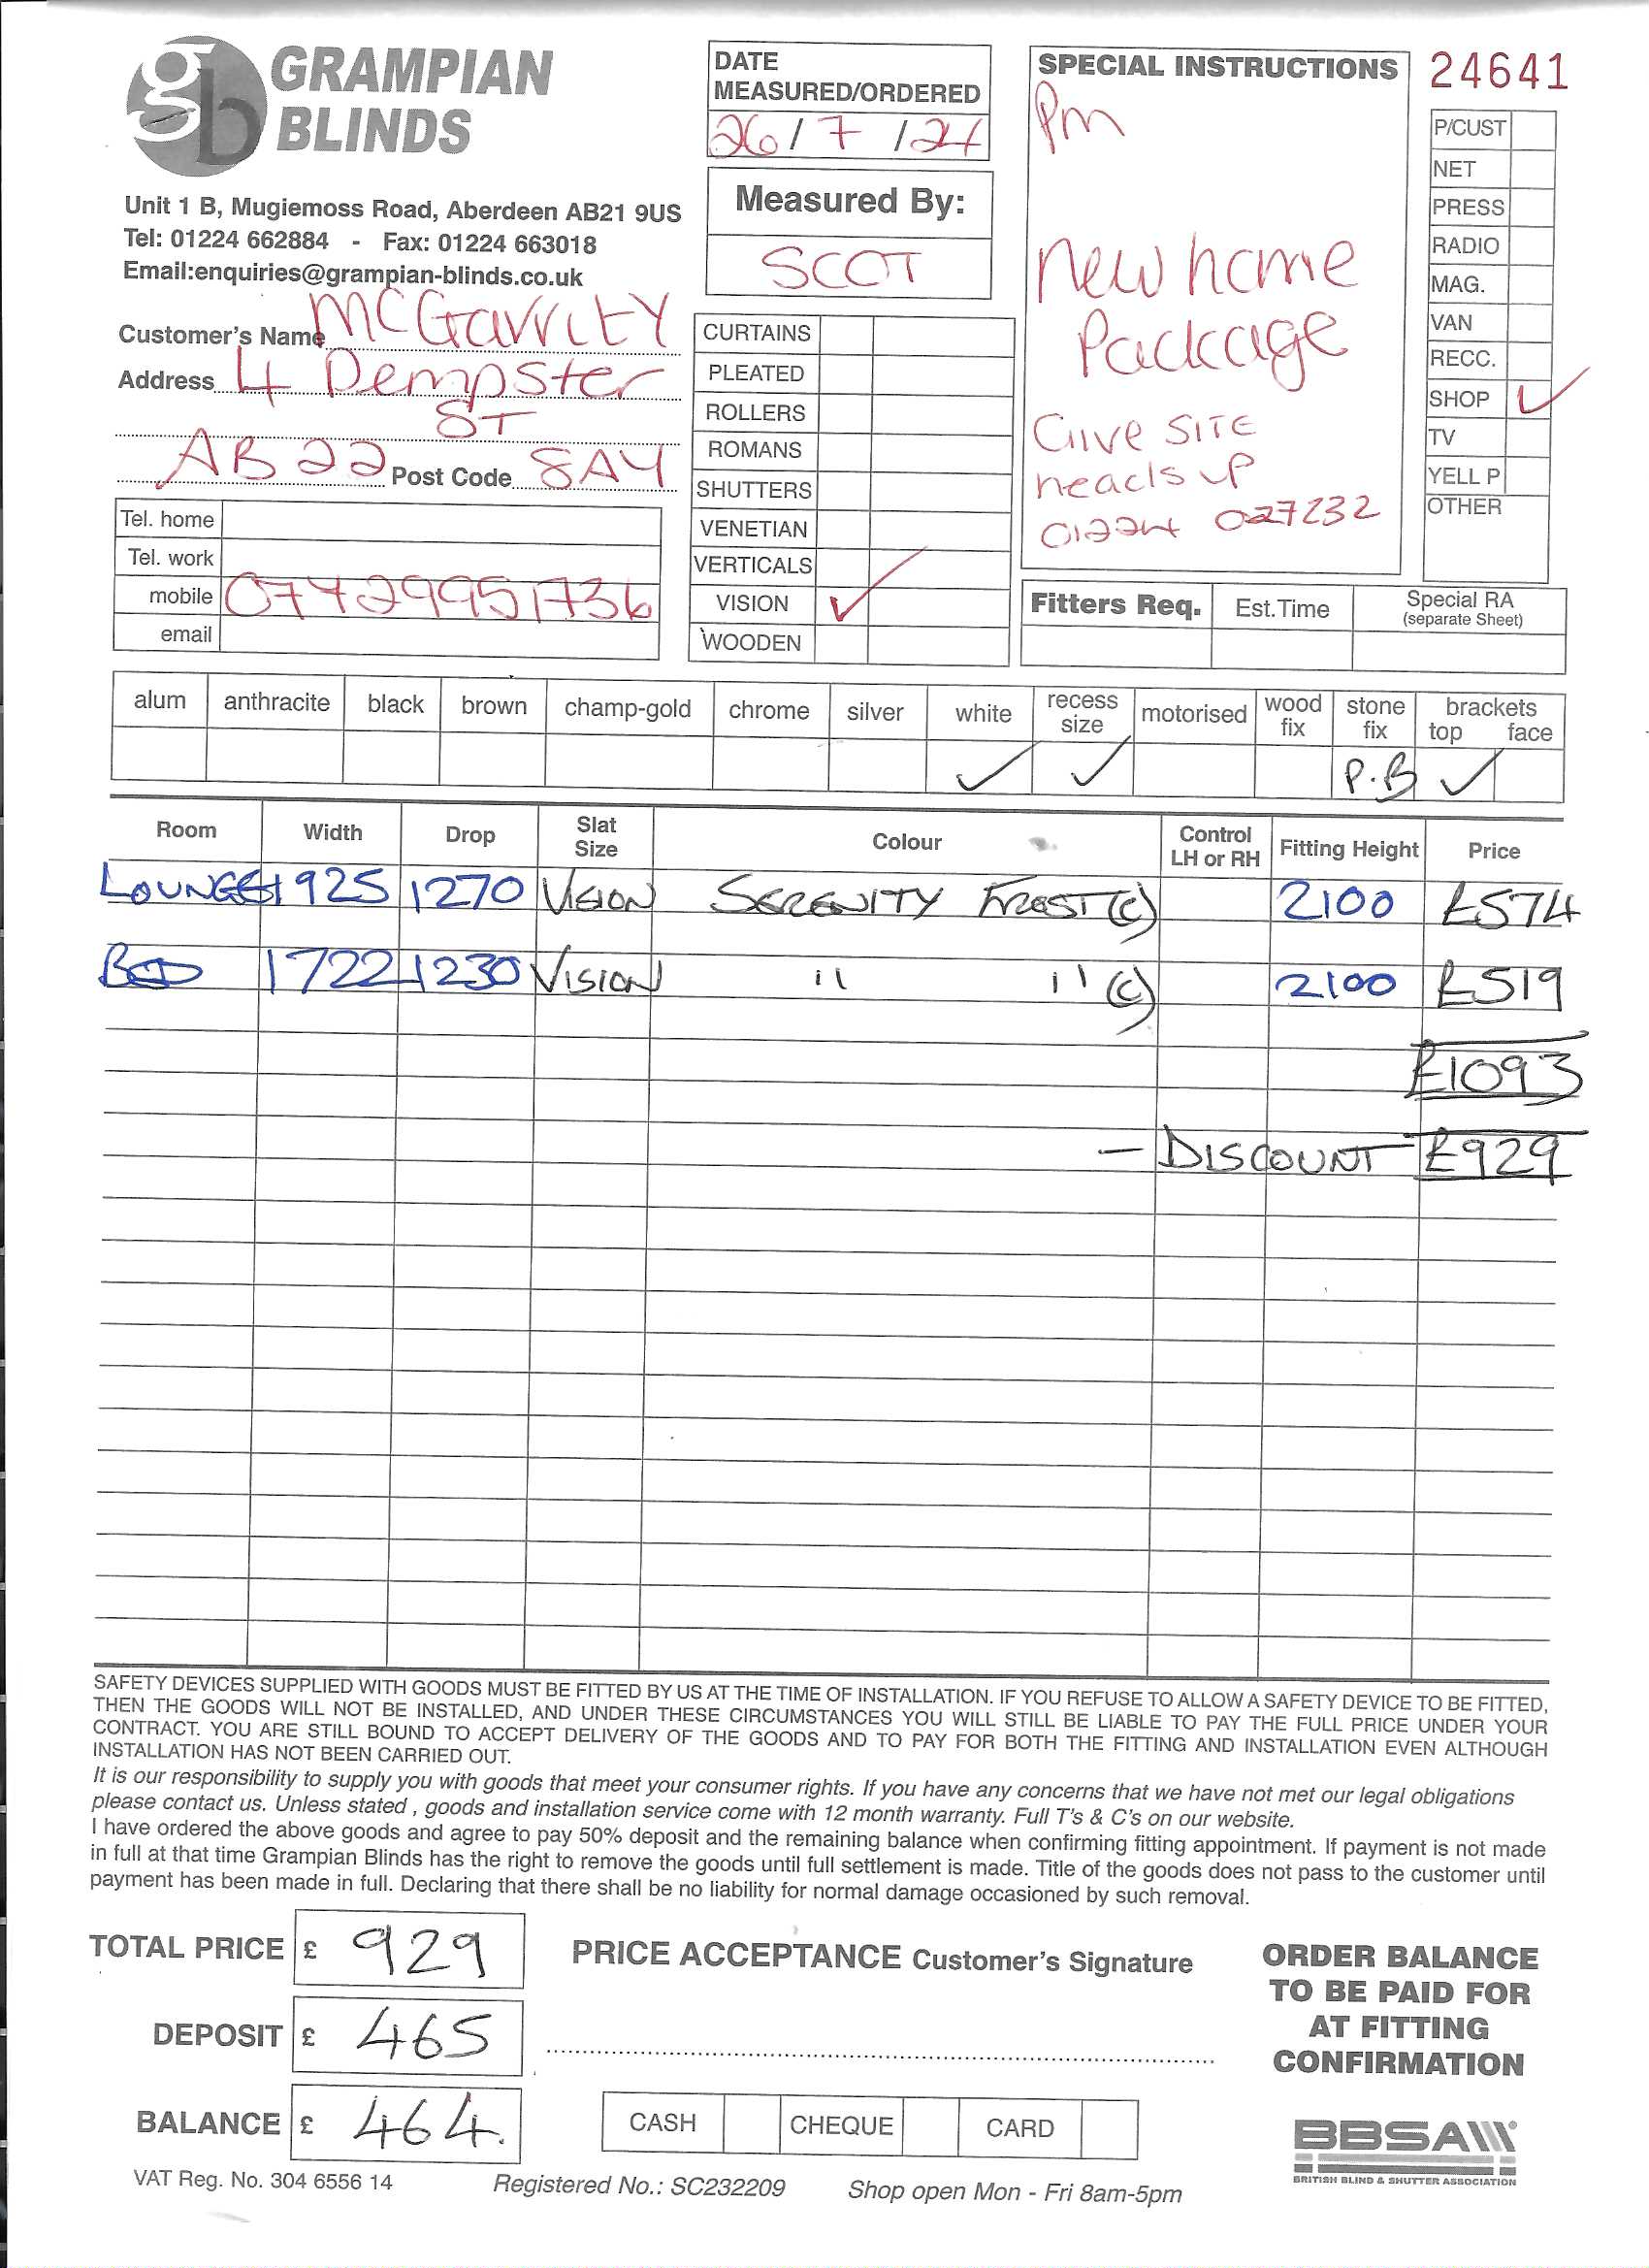 GRAMPIAN
BLINDS
Unit 1 B, Mugiemoss Road, Aberdeen AB21 9US
Tel: 01224 662884 - Fax: 01224 663018
Email:enquiries@grampian-blinds.co.uk
DATE
MEASURED/ORDERED
26 / 7 / 24
Measured By:
SCOT
SPECIAL INSTRUCTIONS
Pm
New home
Package
Give SITE
heads up
01224 027232
24641
P/CUST
NET
PRESS
RADIO
MAG.
VAN
RECC.
SHOP ✓
TV
YELL P
OTHER
Customer's Name McGarrity
Address 4 Dempster
ST
AB22 Post Code 8AY
Tel. home
Tel. work
mobile 07429951736
email
CURTAINS
PLEATED
ROLLERS
ROMANS
SHUTTERS
VENETIAN
VERTICALS
VISION ✓
WOODEN
Fitters Req. Est.Time Special RA
(separate Sheet)
alum anthracite black brown champ-gold chrome silver white recess size motorised wood fix stone fix brackets top face
✓ ✓ P.B ✓
Room Width Drop Slat Size Colour Control LH or RH Fitting Height Price
LOUNGE 1925 1270 VISION SERENITY FROST (C) 2100 £574
BED 1722 1230 VISION " " (C) 2100 £519
£1093
- DISCOUNT £929
SAFETY DEVICES SUPPLIED WITH GOODS MUST BE FITTED BY US AT THE TIME OF INSTALLATION. IF YOU REFUSE TO ALLOW A SAFETY DEVICE TO BE FITTED,
THEN THE GOODS WILL NOT BE INSTALLED, AND UNDER THESE CIRCUMSTANCES YOU WILL STILL BE LIABLE TO PAY THE FULL PRICE UNDER YOUR
CONTRACT. YOU ARE STILL BOUND TO ACCEPT DELIVERY OF THE GOODS AND TO PAY FOR BOTH THE FITTING AND INSTALLATION EVEN ALTHOUGH
INSTALLATION HAS NOT BEEN CARRIED OUT.
It is our responsibility to supply you with goods that meet your consumer rights. If you have any concerns that we have not met our legal obligations
please contact us. Unless stated , goods and installation service come with 12 month warranty. Full T's & C's on our website.
I have ordered the above goods and agree to pay 50% deposit and the remaining balance when confirming fitting appointment. If payment is not made
in full at that time Grampian Blinds has the right to remove the goods until full settlement is made. Title of the goods does not pass to the customer until
payment has been made in full. Declaring that there shall be no liability for normal damage occasioned by such removal.
TOTAL PRICE £ 929
DEPOSIT £ 465
BALANCE £ 464.
PRICE ACCEPTANCE Customer's Signature
CASH CHEQUE CARD
ORDER BALANCE
TO BE PAID FOR
AT FITTING
CONFIRMATION
BBSA
BRITISH BLIND & SHUTTER ASSOCIATION
VAT Reg. No. 304 6556 14
Registered No.: SC232209
Shop open Mon - Fri 8am-5pm